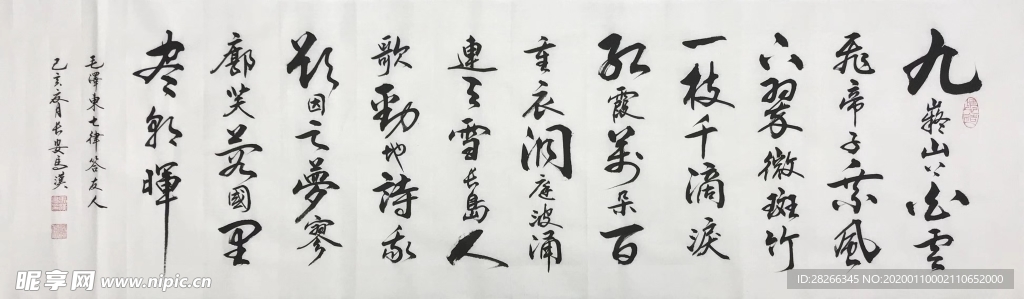 九嶷山上白雲
飛帝子乘風
下翠微斑竹
一枝千滴淚
紅霞萬朵百
重衣洞庭波涌
連天雪長島人
歌動地詩我
欲因之夢寥
廓芙蓉國里
盡朝暉
毛澤東七律答友人
己亥腊月長安馬
昵享网 www.nipic.cn
ID:28266345 NO:20200110002110652000